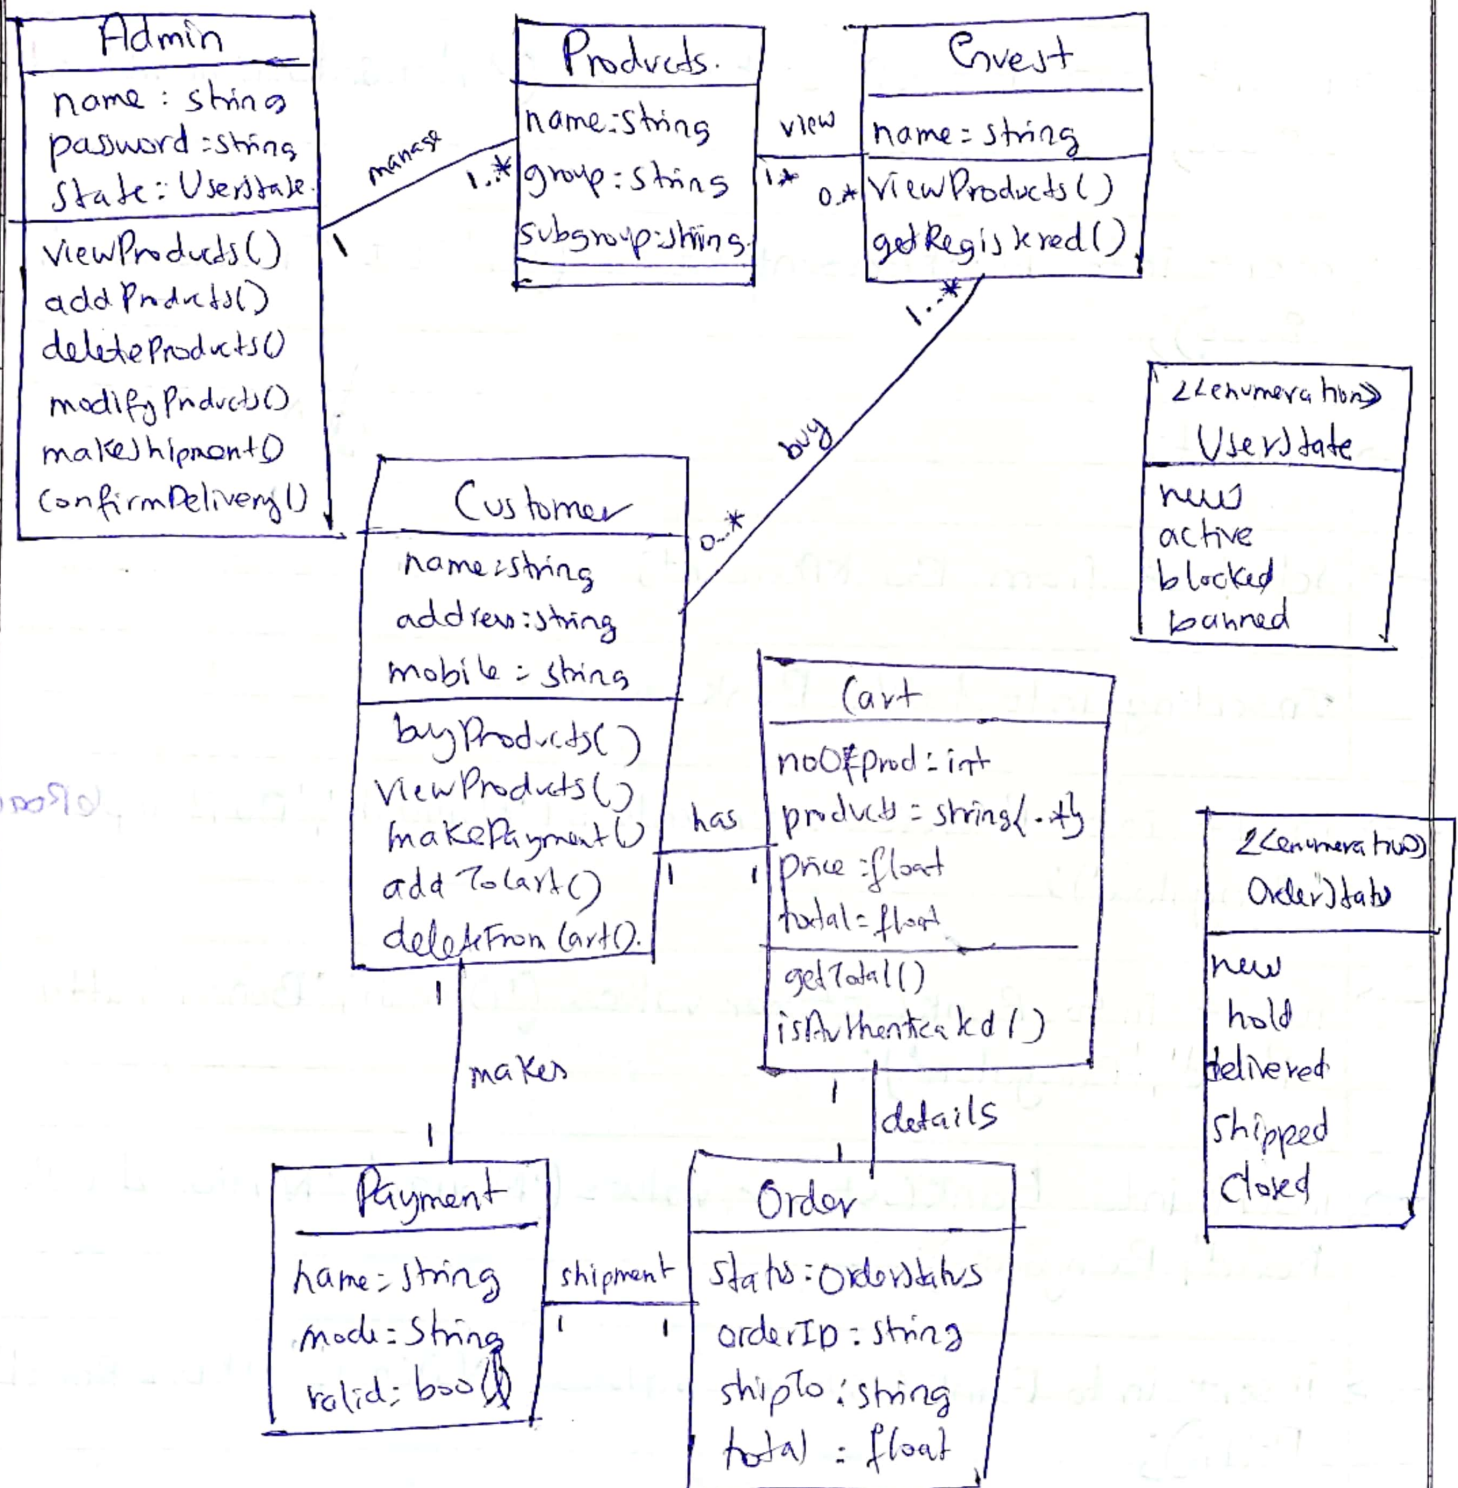 Admin
name : string
password : string
state : UserState.
viewProducts()
addProducts()
deleteProducts()
modifyProducts()
makeshipment()
confirmDelivery()
manage
1
1..*
Products.
name : string
group : string
subgroup : string
view
1*
0.*
Guest
name : string
viewProducts()
getRegistered()
1..*
buy
0..*
<<enumeration>>
UserState
new
active
blocked
banned
Customer
name : string
address : string
mobile : string
buyProducts()
viewProducts()
makePayment()
addToCart()
deleteFromCart().
has
1
1
Cart
noOfprod : int
products : string{..*}
price : float
total : float
getTotal()
isAuthenticated()
<<enumeration>>
OrderStatus
new
hold
delivered
shipped
closed
1
makes
1
1
details
1
Payment
name : string
mode : String
valid : bool
shipment
1
1
Order
status : OrderStatus
orderID : string
shipTo : string
total : float